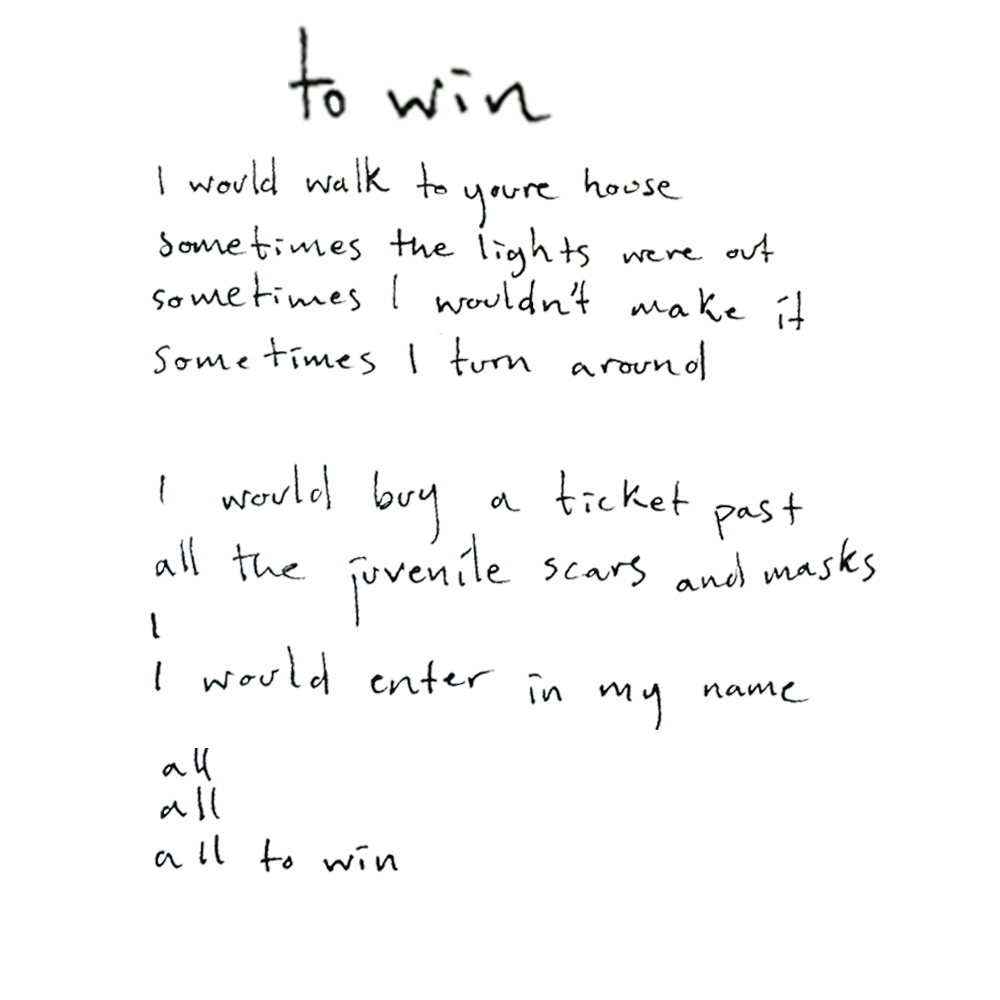 to win
I would walk to youre house
sometimes the lights were out
sometimes I wouldn't make it
sometimes I turn around
I would buy a ticket past
all the juvenile scars and masks
I
I would enter in my name
all
all
all to win